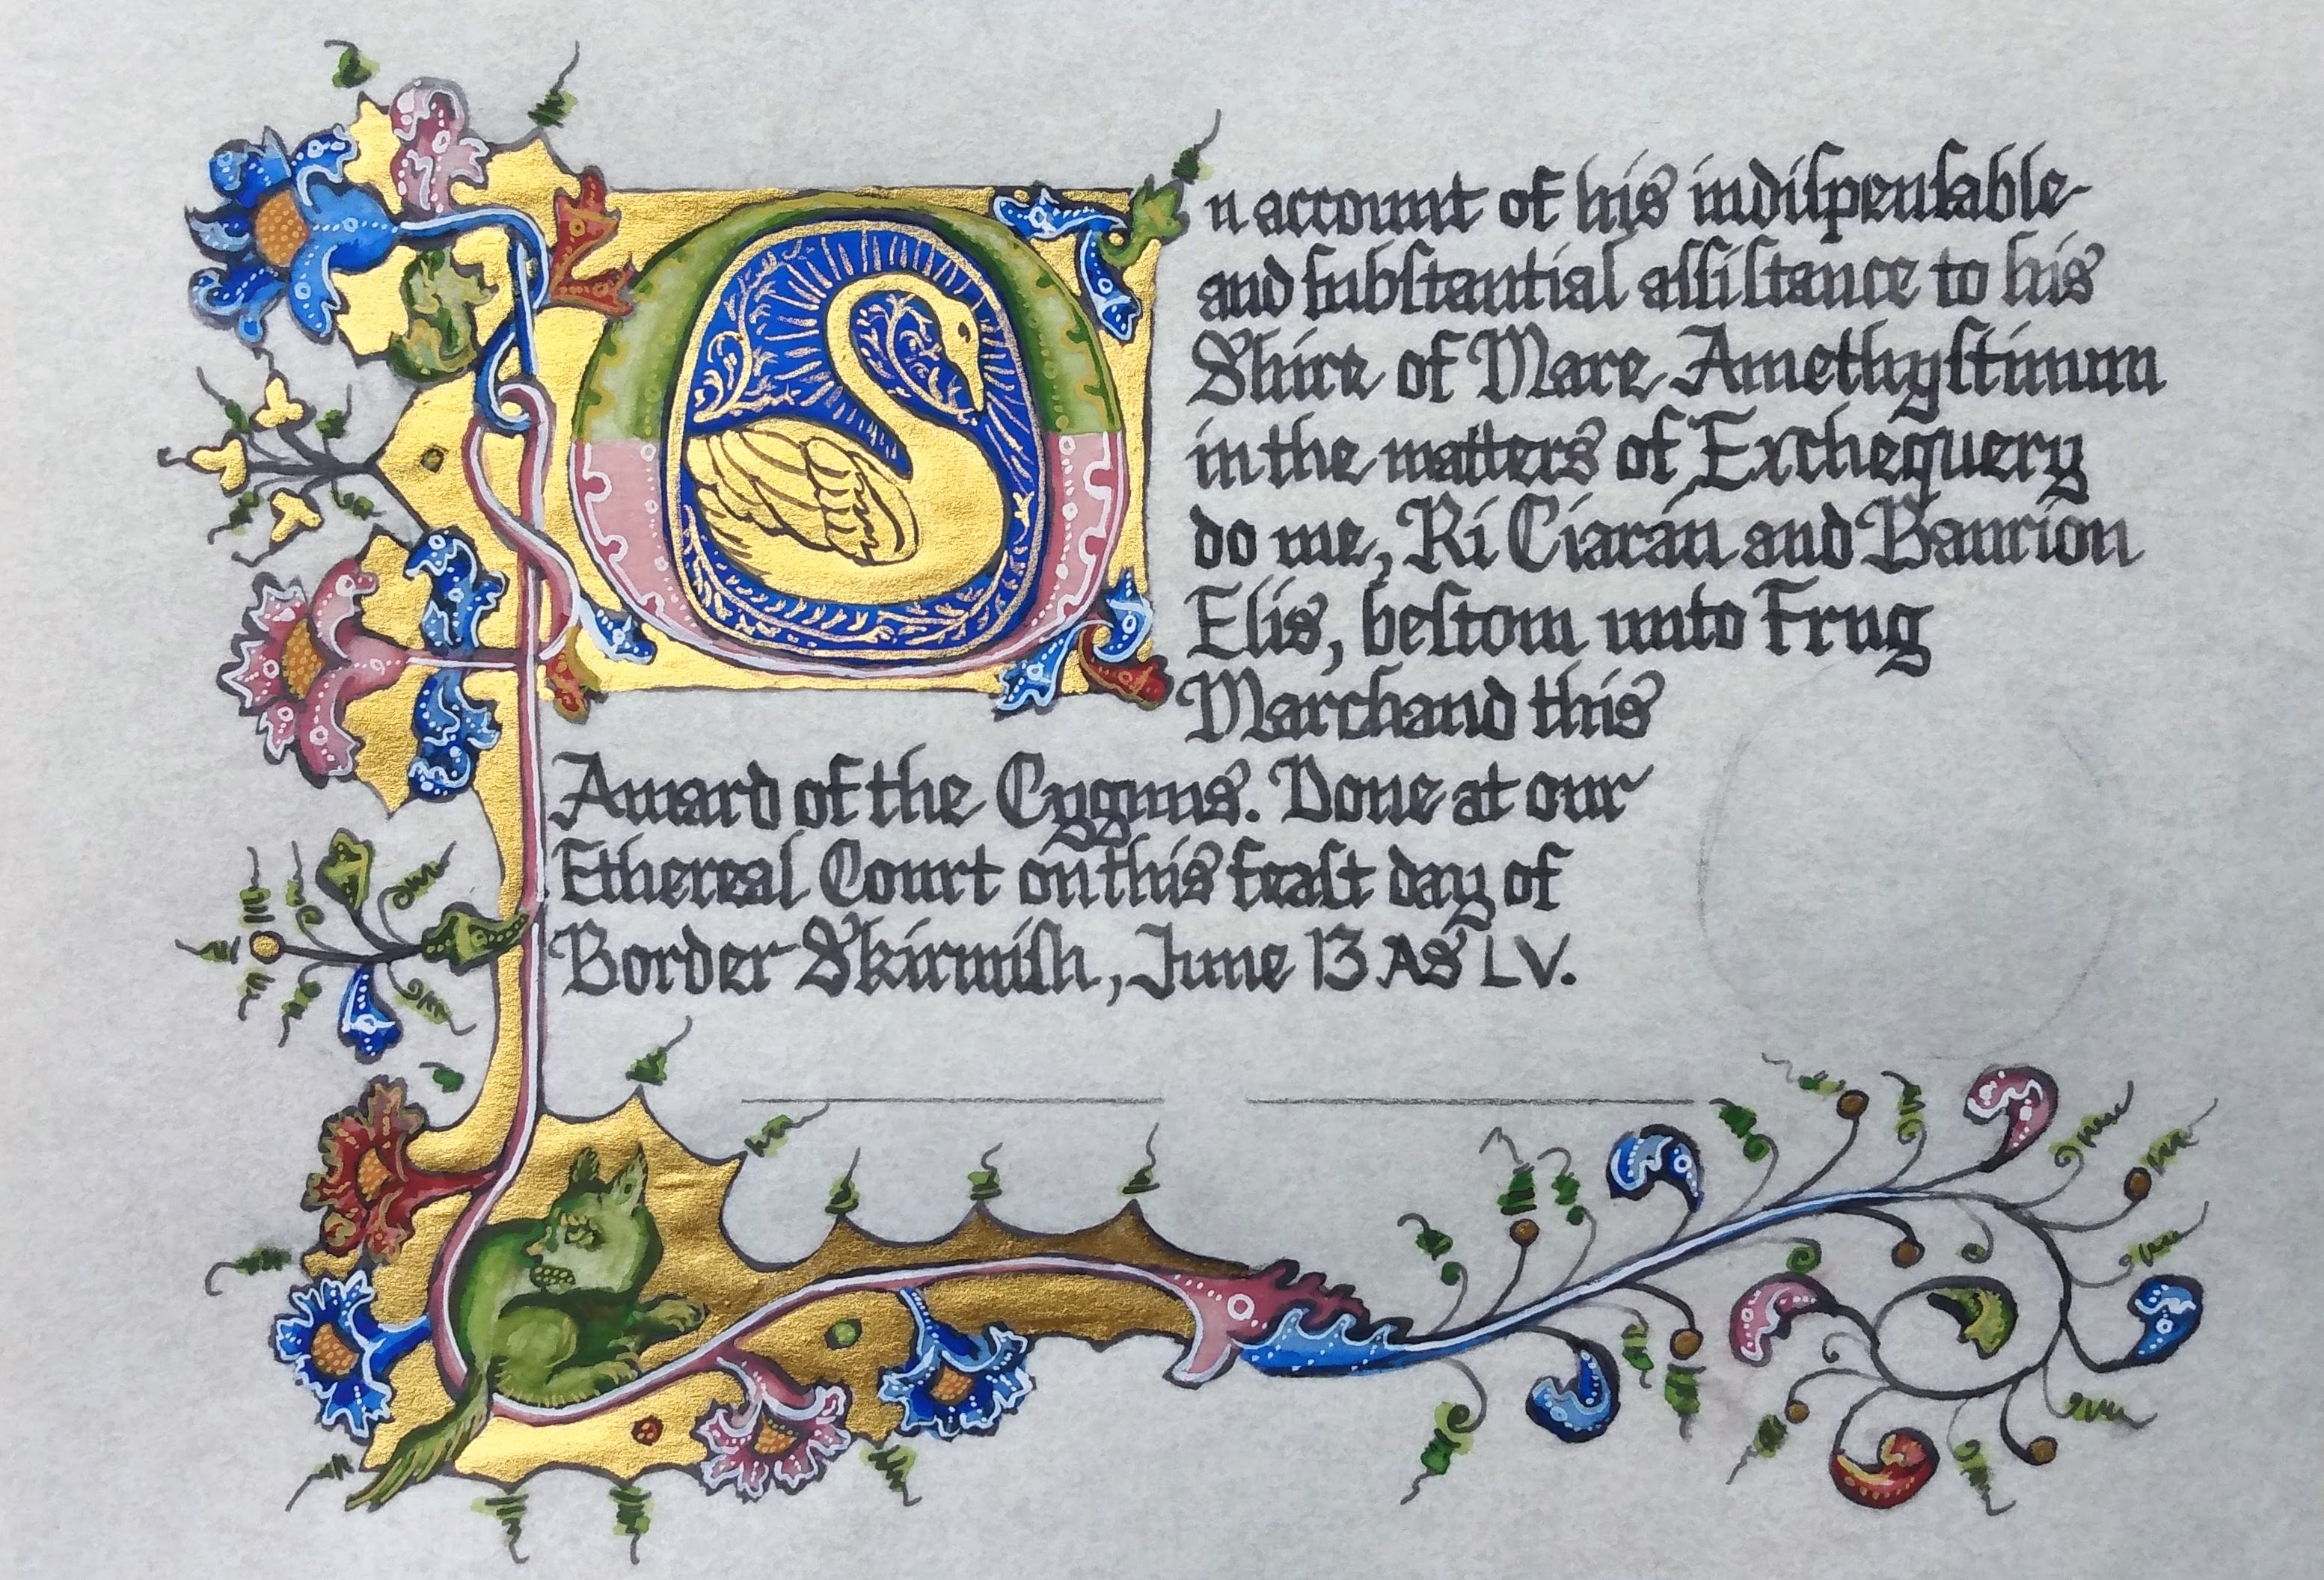 On account of his indiſpenſable
and ſubſtantial aſſiſtance to his
Shire of Mare Amethyſtinum
in the matters of Exchequery
do we, Ri Ciarán and Banrion
Elis, beſtow unto Frug
Marchand this
Award of the Cygnus. Done at our
Ethereal Court on this feaſt day of
Border Skirmiſh, June 13 AS LV.